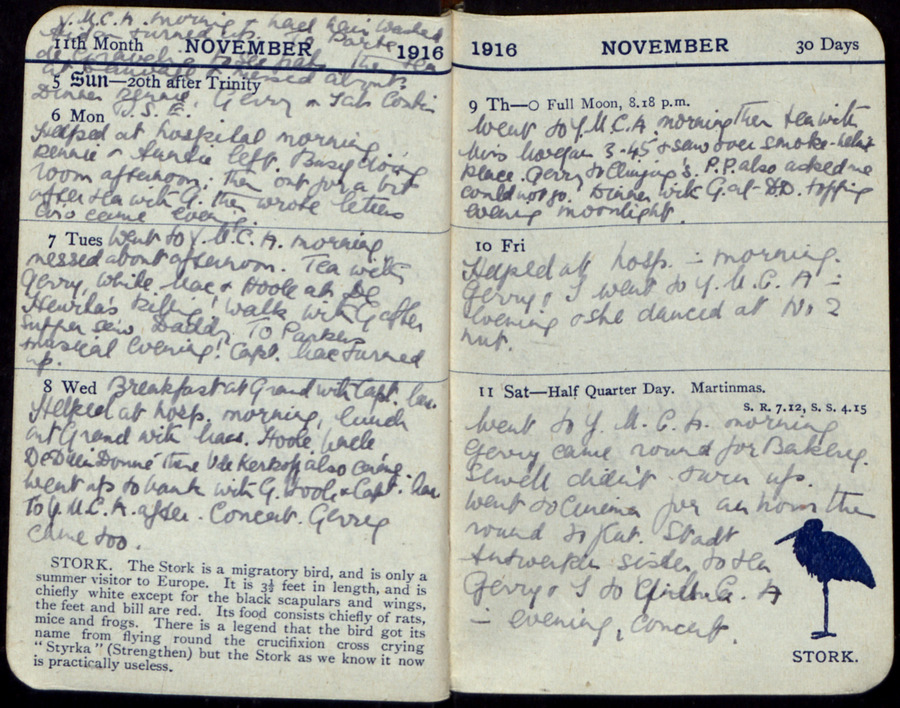 Y.M.C.A. morning & had hair washed
turned up. To
11th Month NOVEMBER 1916
de table pats. The tea
at & messed about
5 Sun—20th after Trinity
Dinner Rennie, Gerry &
6 Mon
Helped at hospital morning,
Rennie & Auntie left. Busy doing
room afternoon; then out for a bit
after tea with G. then wrote letters
came evening.
7 Tues Went to Y.M.C.A. morning
messed about afternoon. Tea with
Gerry, while Mac & Hoole at De
killing! walk with G after
supper saw Daddy. To Parkers
musical evening! Capt. Mac turned
up.
8 Wed Breakfast at Grand with Capt.
Helped at hosp. morning, lunch
at Grand with Macs. Hoole, while
there also came.
went up to bank with G. Hoole & Capt.
To Y.M.C.A. after. Concert. Gerry
came too.
STORK. The Stork is a migratory bird, and is only a
summer visitor to Europe. It is 3½ feet in length, and is
chiefly white except for the black scapulars and wings,
the feet and bill are red. Its food consists chiefly of rats,
mice and frogs. There is a legend that the bird got its
name from flying round the crucifixion cross crying
"Styrka" (Strengthen) but the Stork as we know it now
is practically useless.
1916 NOVEMBER 30 Days
9 Th—○ Full Moon, 8.18 p.m.
Went to Y.M.C.A. morning then tea with
Miss 3-45 & saw over smoke-helmet
place. Gerry to 's. P.P. also asked me
could not go. Dinner with G. at D.D. topping
evening moonlight.
10 Fri
Helped at hosp. – morning.
Gerry & I went to Y.M.C.A –
evening & she danced at No 2
hut.
11 Sat—Half Quarter Day. Martinmas.
S. R. 7.12, S. S. 4.15
Went to Y.M.C.A. morning
Gerry came round for Bakery.
Sewell didn't turn up.
Went to Cinema for an hour the
round to flat. Stadt
Antwerpen sister, to tea
Gerry & I to C. A
– evening, concert.
STORK.